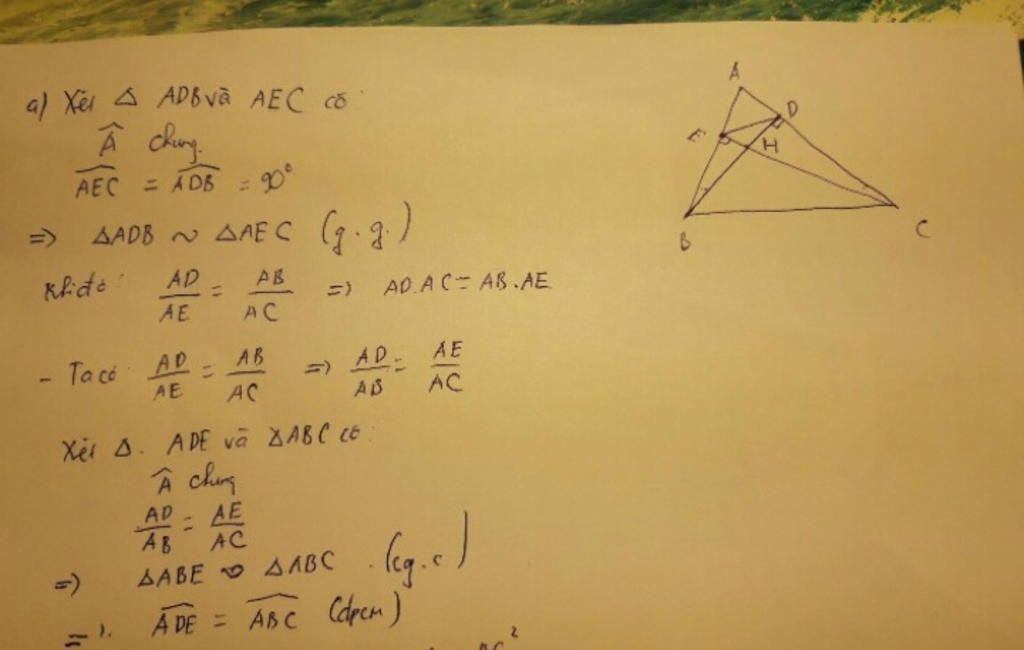 a) Xét Δ ADB và AEC có:
Â chung.
\widehat{AEC} = \widehat{ADB} = 90°
=> ΔADB ~ ΔAEC (g.g.)
Khi đó: AD/AE = AB/AC => AD.AC = AB.AE
- Ta có: AD/AE = AB/AC => AD/AB = AE/AC
Xét Δ. ADE và ΔABC có:
Â chung
AD/AB = AE/AC
=> ΔABE ~ ΔABC. (cg.c)
=> \widehat{ADE} = \widehat{ABC} (đpcm)
A
D
E
H
B
C